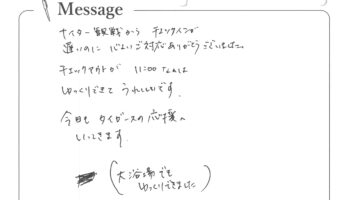 Message
ナイター観戦から チェックインが
遅いのに 心よいご対応ありがとうございました。
チェックアウトが 11:00なのは
ゆっくりできて うれしいです。
今日も タイガースの応援へ
いってきます。
(大浴場でも
ゆっくりできました)